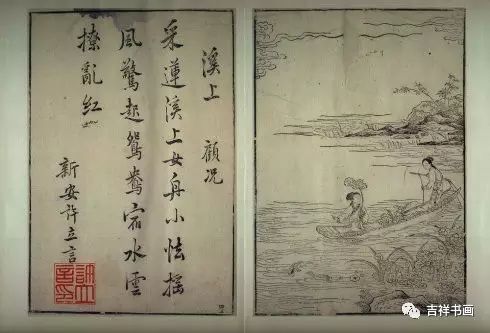 溪上　顧况
采蓮溪上女舟小怯搖
風驚起鴛鴦宿水雲
撩亂紅
新安許立言
吉祥书画